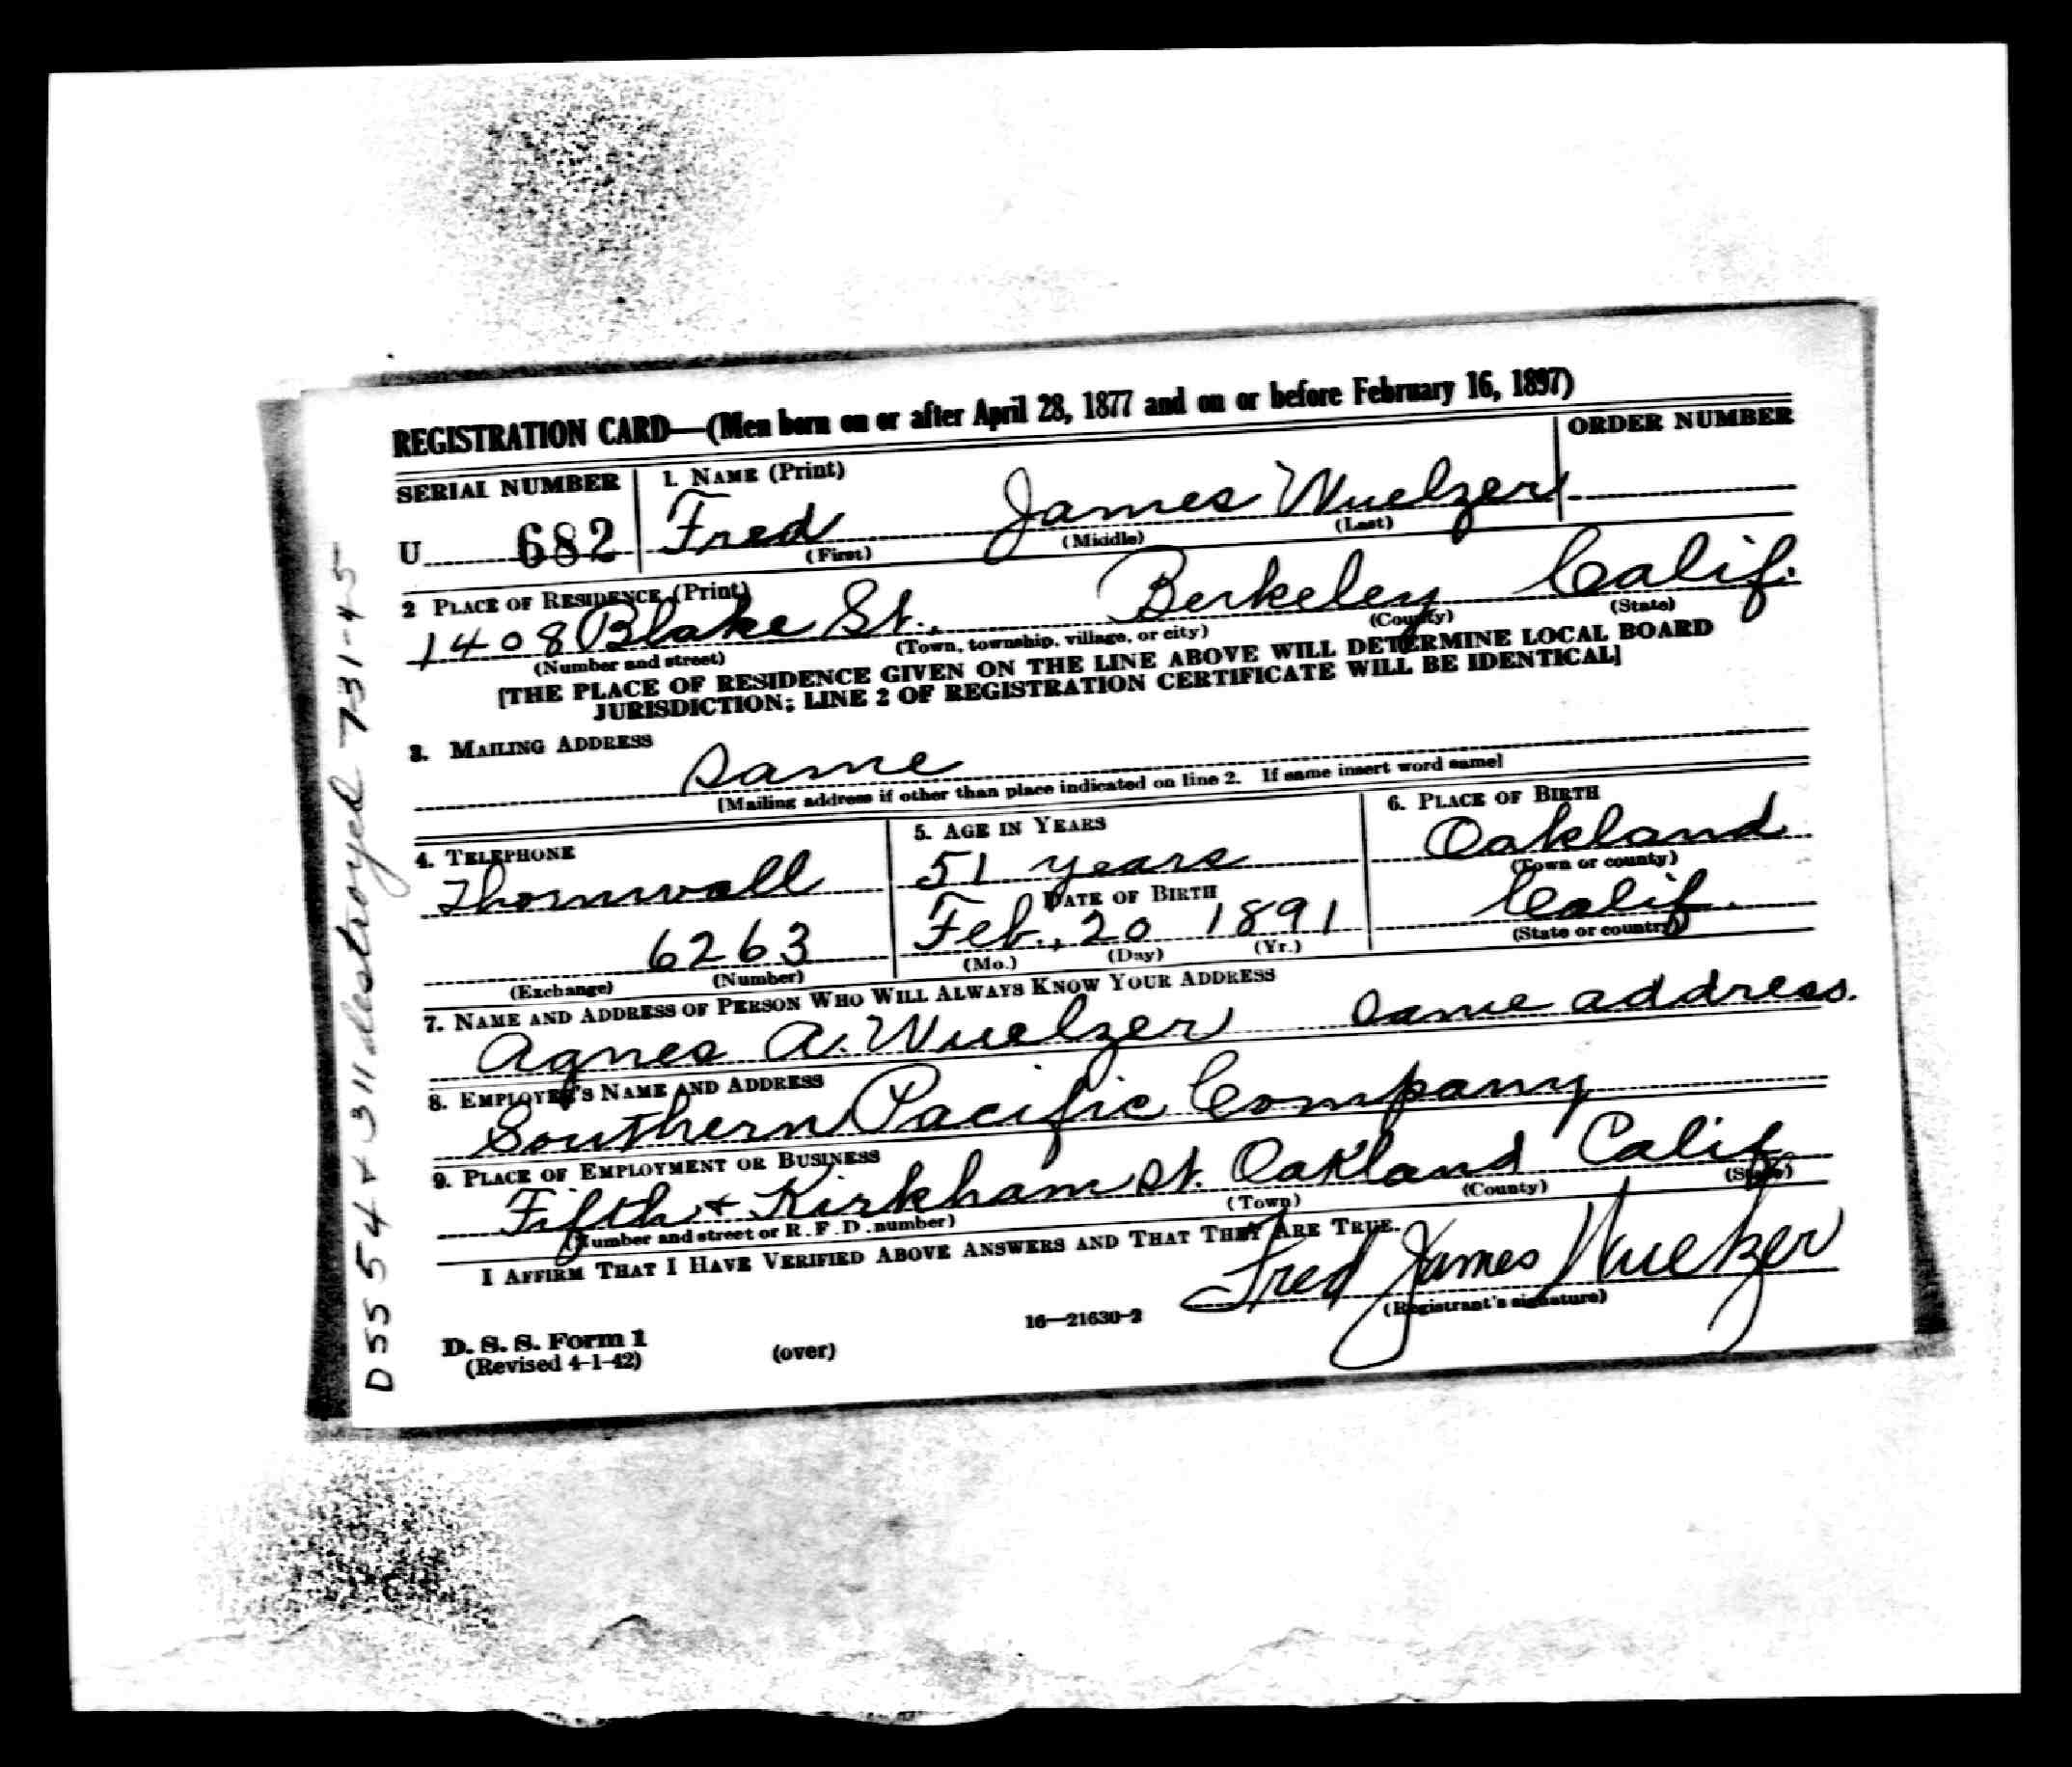 REGISTRATION CARD—(Men born on or after April 28, 1877 and on or before February 16, 1897)
SERIAL NUMBER
1. NAME (Print)
ORDER NUMBER
U 682
Fred James Wuelzer
(First) (Middle) (Last)
2 PLACE OF RESIDENCE (Print)
1408 Blake St., Berkeley Calif.
(Number and street) (Town, township, village, or city) (County) (State)
[THE PLACE OF RESIDENCE GIVEN ON THE LINE ABOVE WILL DETERMINE LOCAL BOARD
JURISDICTION; LINE 2 OF REGISTRATION CERTIFICATE WILL BE IDENTICAL]
3. MAILING ADDRESS
Same
[Mailing address if other than place indicated on line 2. If same insert word same]
4. TELEPHONE
Thornwall
6263
(Exchange) (Number)
5. AGE IN YEARS
51 years
DATE OF BIRTH
Feb., 20 1891
(Mo.) (Day) (Yr.)
6. PLACE OF BIRTH
Oakland
(Town or county)
Calif.
(State or country)
7. NAME AND ADDRESS OF PERSON WHO WILL ALWAYS KNOW YOUR ADDRESS
Agnes A. Wuelzer Same address.
8. EMPLOYER'S NAME AND ADDRESS
Southern Pacific Company
9. PLACE OF EMPLOYMENT OR BUSINESS
Fifth + Kirkham St. Oakland Calif
(Number and street or R. F. D. number) (Town) (County) (State)
I AFFIRM THAT I HAVE VERIFIED ABOVE ANSWERS AND THAT THEY ARE TRUE.
Fred James Wuelzer
(Registrant's signature)
D. S. S. Form 1
(Revised 4-1-42)
(over)
16—21630-2
DSS 54 + 311 destroyed 731-45